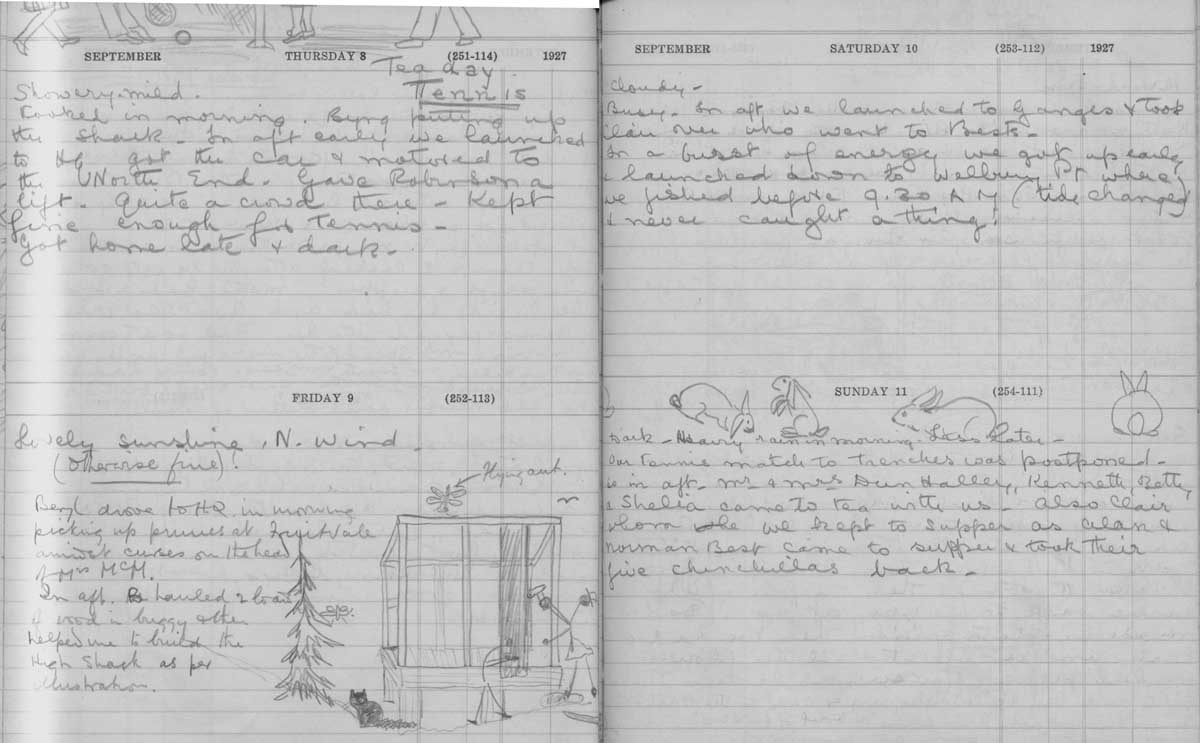 SEPTEMBER THURSDAY 8 (251-114) 1927
Tea day
Showery. mild. Tennis
in morning. Byng putting up
the shack - In aft early we launched
to HQ got the car & motored to
the North End. Gave Robinson a
lift. Quite a crowd there - Kept
fine enough for Tennis -
Got home late & dark -
FRIDAY 9 (252-113)
Lovely sunshine, N. Wind
(otherwise fine).
Flying ant.
Beryl drove to HQ in morning
picking up prunes at Fruitvale
amidst curses on the head
of Mrs McM.
In aft. hauled 2 loads
of wood in buggy & then
helped me to build the
High Shack as per
illustration.
SEPTEMBER SATURDAY 10 (253-112) 1927
Cloudy -
Busy. In aft we launched to Ganges & took
over who went to Bests -
In a burst of energy we got up early
& launched down to Welbury Pt where
we fished before 9.30 AM (tide changed)
& never caught a thing!
SUNDAY 11 (254-111)
Dark - Heavy rain in morning. Less later -
Our Tennis match to trenches was postponed -
in aft - Mr & Mrs Halley, Kenneth, Betty,
& Shelia came to tea with us - Also Clair
whom we kept to supper as &
Norman Best came to supper & took their
five chinchillas back -